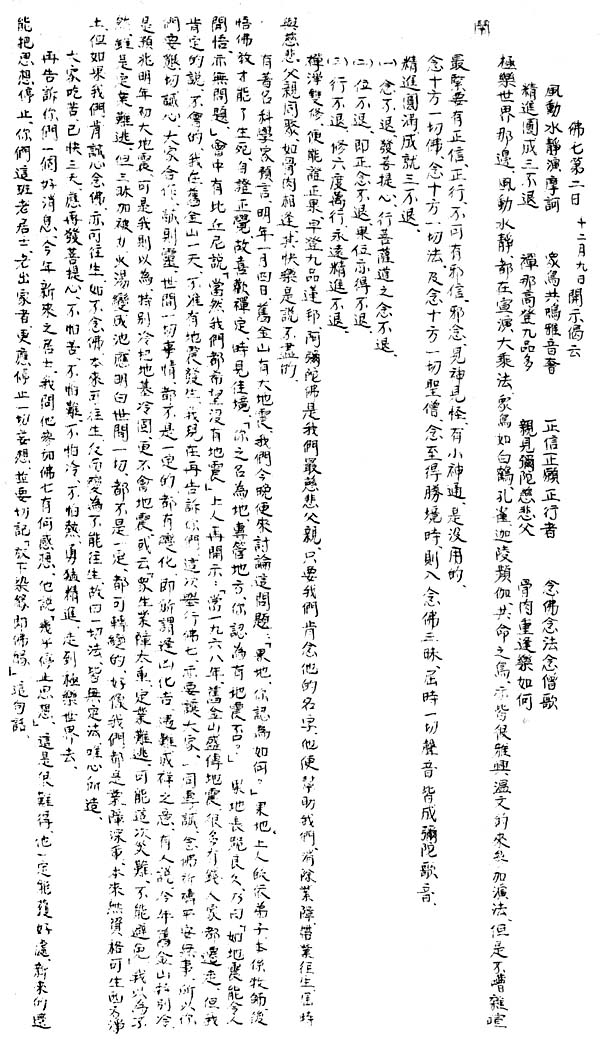 佛七第二日 十二月九日開示偈云
風動水靜演摩訶 衆鳥共鳴雅音奢 正信正願正行者 念佛念法念僧歌
精進圓成三不退 禪那高登九品多 親見彌陀慈悲父 骨肉重逢樂如何
極樂世界那邊、風動水靜、都在宣演大乘法、衆鳥如白鶴、孔雀、迦陵頻伽、共命之鳥、亦皆很雅興溫文的來參加演法、但是不曹雜喧
鬧
最緊要有正信、正行、不可有邪信、邪念、見神見怪、有小神通、是沒用的、
念十方一切佛、念十方一切法、及念十方一切聖僧、念至得勝境時、則入念佛三昧、屆時一切聲音皆成彌陀歌音、
精進圓滿成就三不退、
㈠念不退、發菩提心、行菩薩道之念不退、
㈡位不退、即正念不退、果位亦得不退、
㈢行不退、修六度萬行、永遠精進不退、
禪淨雙修、便能證正果、早登九品蓮邦、阿彌陀佛是我們最慈悲父親、只要我們肯念他的名字、他便幫助我們消除業障、帶業往生、屆時
與慈悲父親同聚、如骨肉相逢、其快樂是說不盡的、
有著名科學家預言、明年一月四日、舊金山有大地震、我們今晚便來討論這問題、「果地、你認為如何？」果地、上人皈依弟子、本係牧師、後
悟佛教才能了生死、自證正覺、故喜歡禪定、時見佳境、「你之名為地、專管地方、你認為有地震否？」果地長跪良久、乃曰、「如地震能令人
開悟、亦無問題、」會中有比丘尼說、「當然我們都希望沒有地震」上人再開示：「當一九六八年、舊金山盛傳地震、很多有錢人家都遷走、但我
肯定的說、不會的、我在舊金山一天、不准有地震發生、我現在再告訴你們、這次舉行佛七、亦要讓大家、一同虔誠、念佛祈禱平安無事、所以你
們要懇切誠心、大家合作、誠則靈、世間一切事情、都不是一定的、都有變化、即所謂逢凶化吉、遇難成祥之意、有人說、今年舊金山特別冷、
是預兆明年初大地震、可是我則以為特別冷把地基冷固、更不會地震、或云「衆生業障太重、定業難逃、可能這次災難不能避免」我以為不
然、雖是定業難逃、但三昧加被力、火湯變成池、應明白世間一切、都不是一定、都可轉變的、好像我們都是業障深重、本來無資格可生西方淨
土、但如果我們肯誠心念佛、亦可往生、如不念佛、本來可往生、反而變為不能往生、故曰一切法、皆無定法、唯心所造、
大家吃苦已快三天、應再發菩提心、不怕苦、不怕難、不怕冷、不怕熱、勇猛精進、走到極樂世界去、
再告訴你們一個好消息、今年新來之居士、我問他參加佛七有何感想、他說「幾乎停止思想」、這是很難得、他一定能獲好處、新來的還
能把思想停止、你們這班老居士、老出家者、更應停止一切妄想、並要切記「放下染緣即佛緣」這句話、